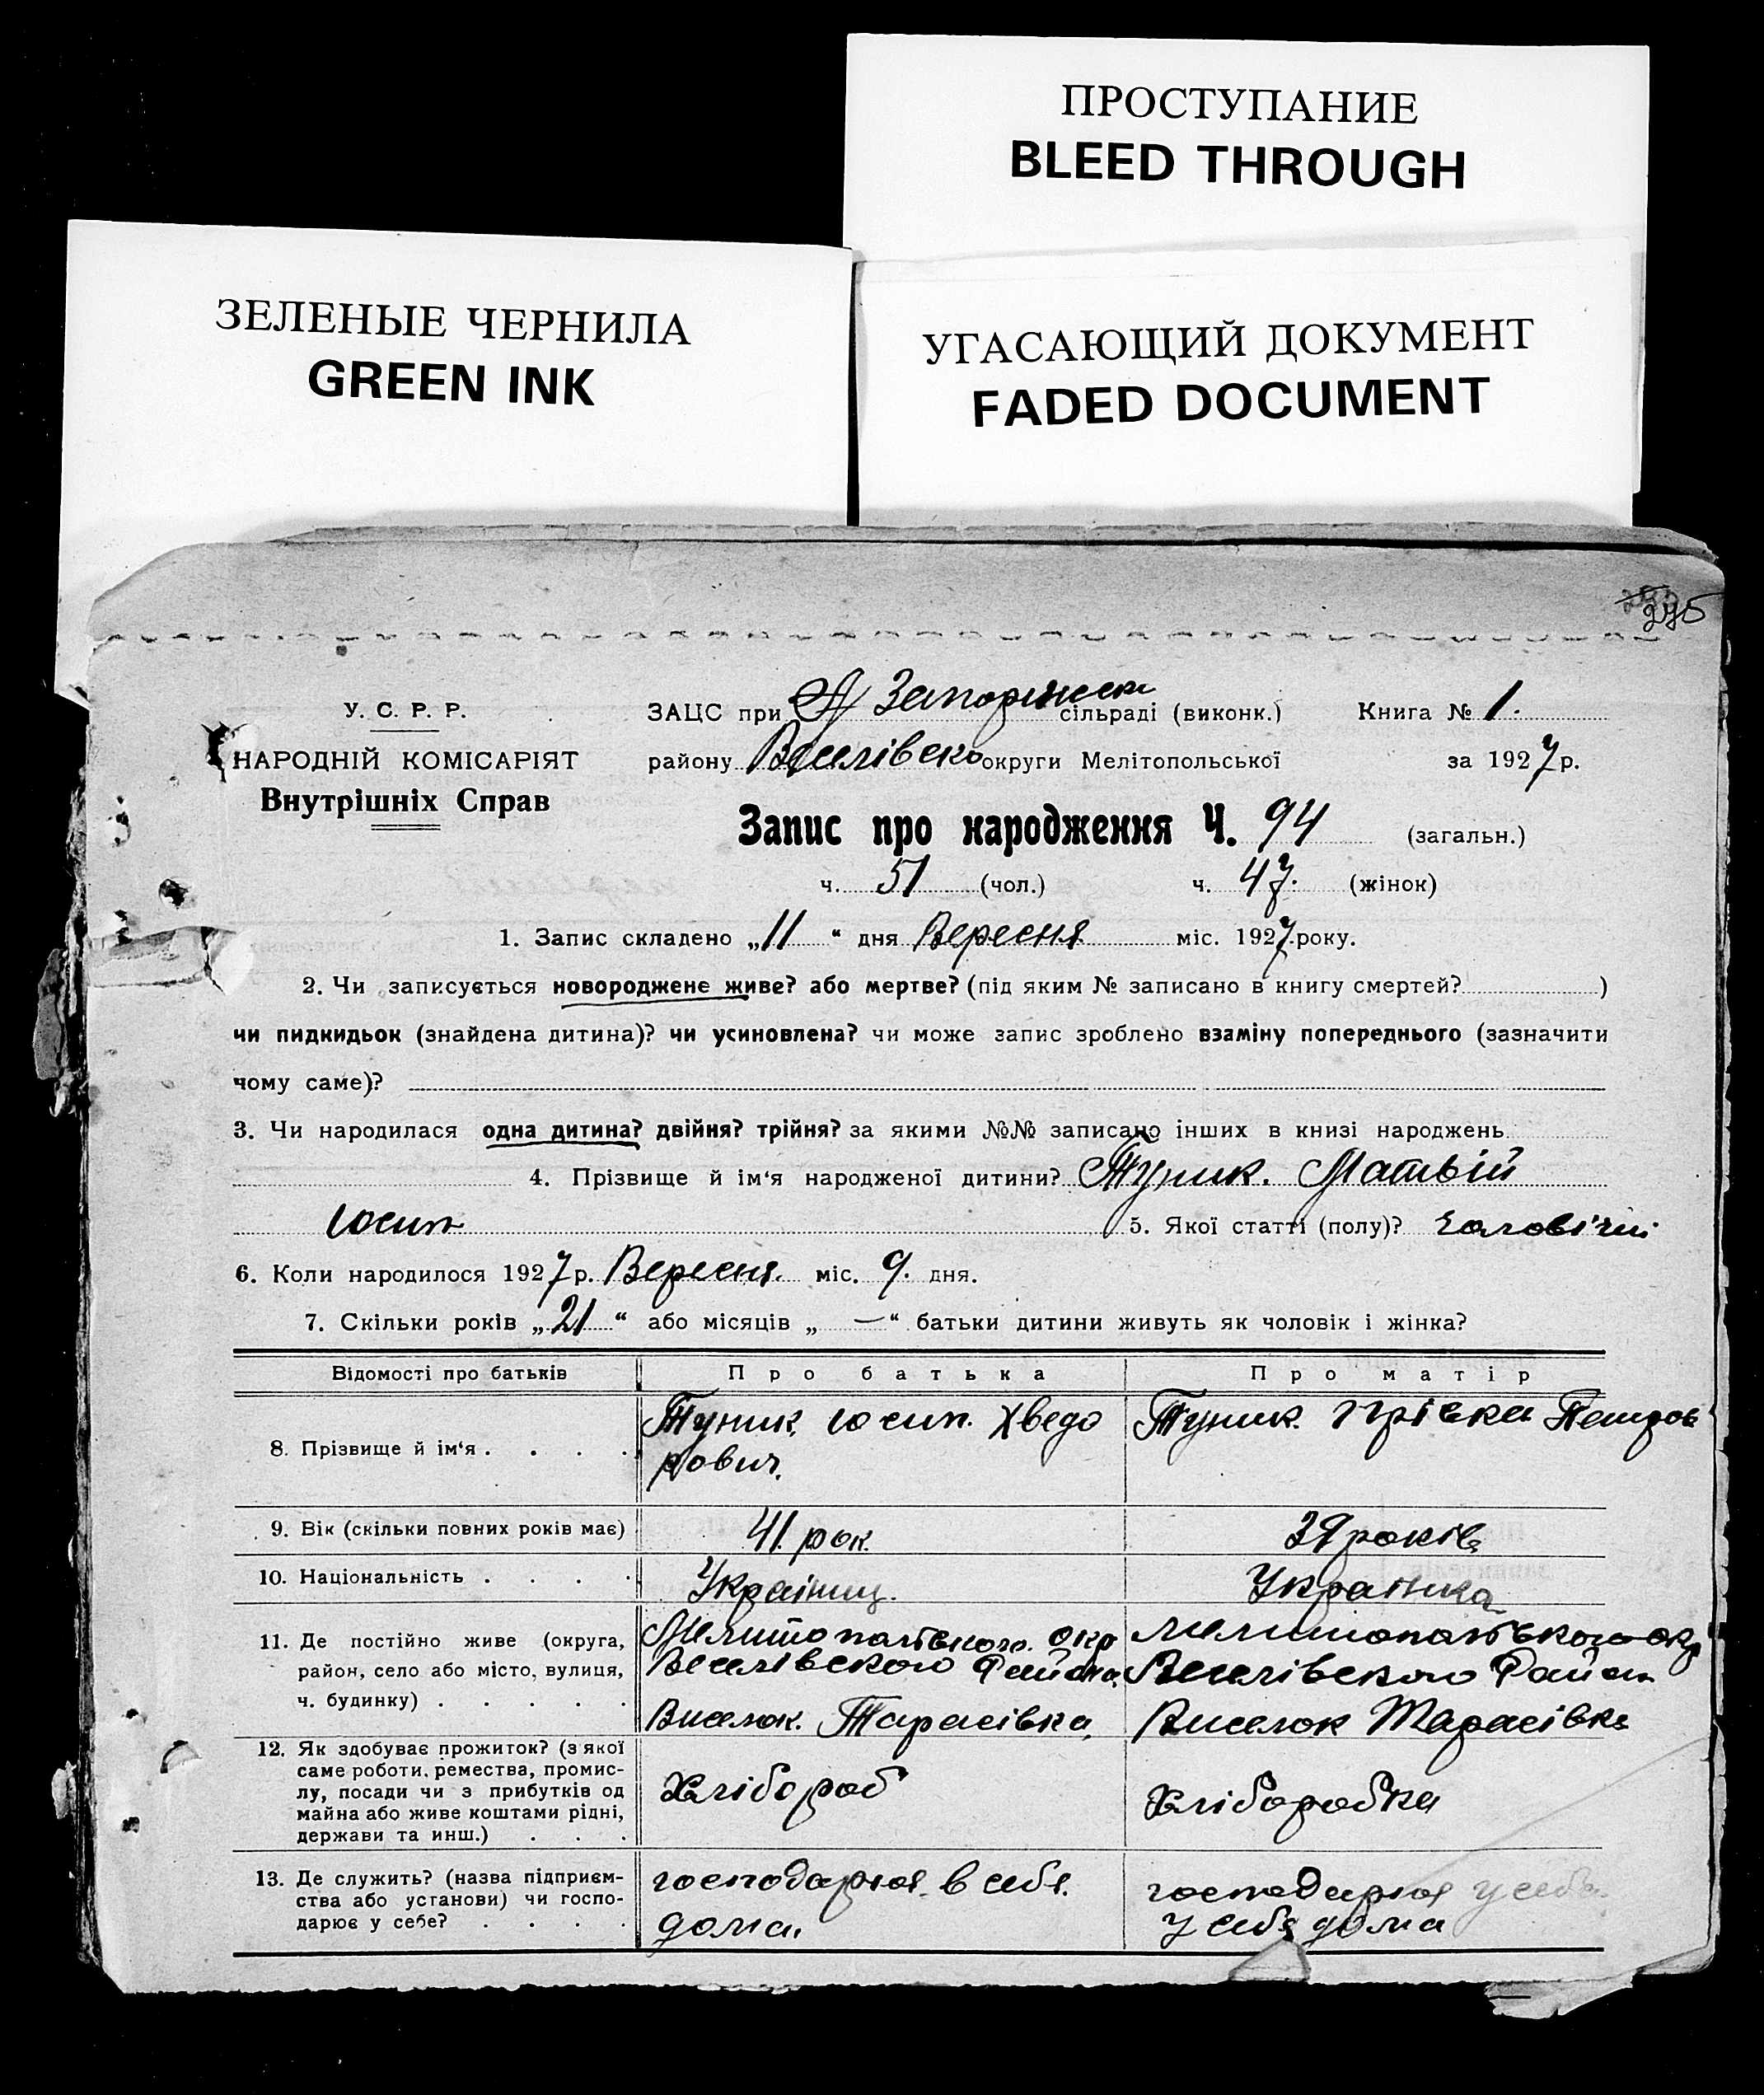 ПРОСТУПАНИЕ
BLEED THROUGH
ЗЕЛЕНЫЕ ЧЕРНИЛА
GREEN INK
УГАСАЮЩИЙ ДОКУМЕНТ
FADED DOCUMENT
У. С. Р. Р.
НАРОДНІЙ КОМІСАРІЯТ
Внутрішніх Справ
ЗАЦС при сільраді (виконк.) Книга № 1.
району Веселівсько округи Мелітопольської за 1927 р.
Запис про народження Ч. 94 (загальн.)
ч. 51 (чол.) ч. 47. (жінок)
1. Запис складено „11“ дня Вересня міс. 1927 року.
2. Чи записується новороджене живе? або мертве? (під яким № записано в книгу смертей? )
чи пидкидьок (знайдена дитина)? чи усиновлена? чи може запис зроблено взаміну попереднього (зазначити
чому саме)?
3. Чи народилася одна дитина? двійня? трійня? за якими №№ записано інших в книзі народжень
4. Прізвище й ім‘я народженої дитини? Туник. Матвій
Юсип 5. Якої статті (полу)? Чоловічий
6. Коли народилося 1927 р. Вересня. міс. 9. дня.
7. Скільки років „21“ або місяців „—“ батьки дитини живуть як чоловік і жінка?
Відомості про батьків Про батька Про матір
8. Прізвище й ім‘я . . . . Туник. Юсип. Хведо
рович. Туник.
9. Вік (скільки повних років має) 41. рок. 39 років
10. Національність . . . . Україниц. Українка
11. Де постійно живе (округа,
район, село або місто, вулиця,
ч. будинку) . . . . .
Веселівского Району
Виселок. Тарасівка,
Веселівского Район
Виселок Тарасівка
12. Як здобуває прожиток? (з якої
саме роботи, ремества, промис-
лу, посади чи з прибутків од
майна або живе коштами рідні,
держави та инш.) . . .
Хлібороб
Хліборобка
13. Де служить? (назва підприєм-
ства або установи) чи госпо-
дарює у себе? . . . .
господарюя в себя.
дома.
господарюя у себя
у себя дома